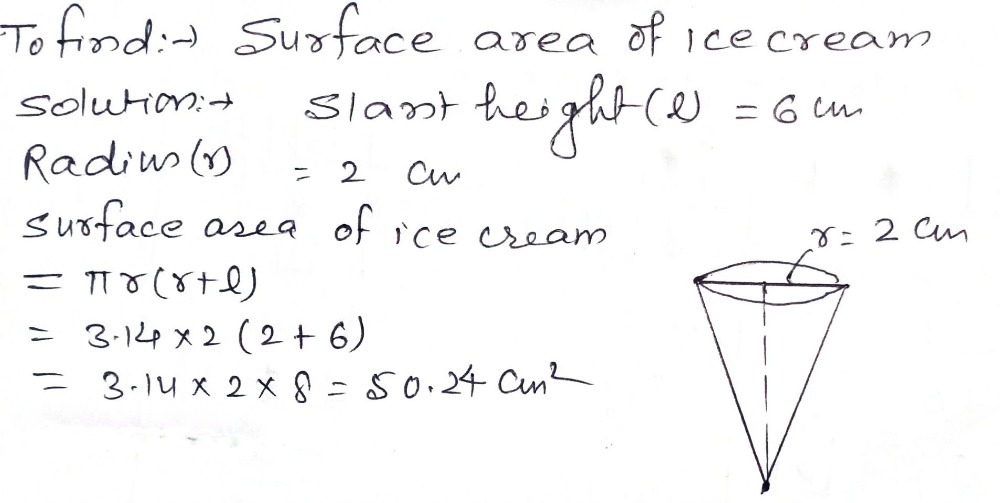 To find:→ Surface area of ice cream
Solution:→ Slant height (l) = 6 cm
Radius (r) = 2 cm
Surface area of ice cream
r = 2 cm
= πr(r+l)
= 3.14 × 2 (2 + 6)
= 3.14 × 2 × 8 = 50.24 cm²